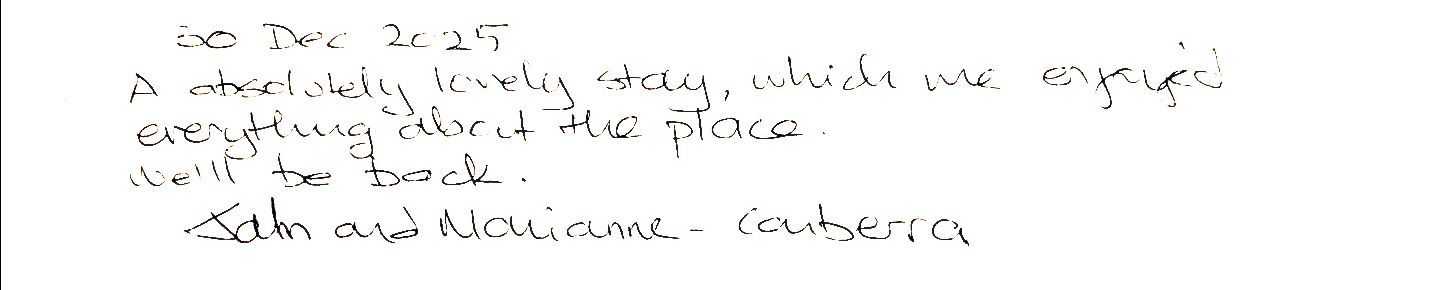 30 Dec 2025
A absolutely lovely stay, which we enjoyed
everything about the place.
We'll be back.
John and Marianne - Canberra